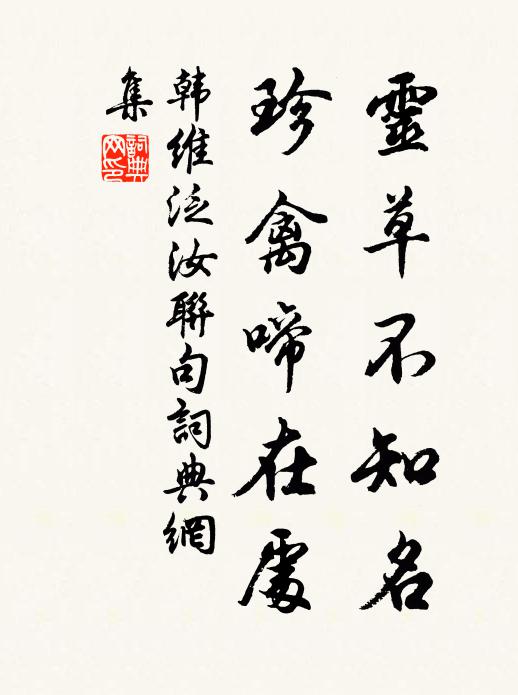 靈草不知名
珍禽啼在處
韓維泛汝聯句詞典網
集
詞典
网印